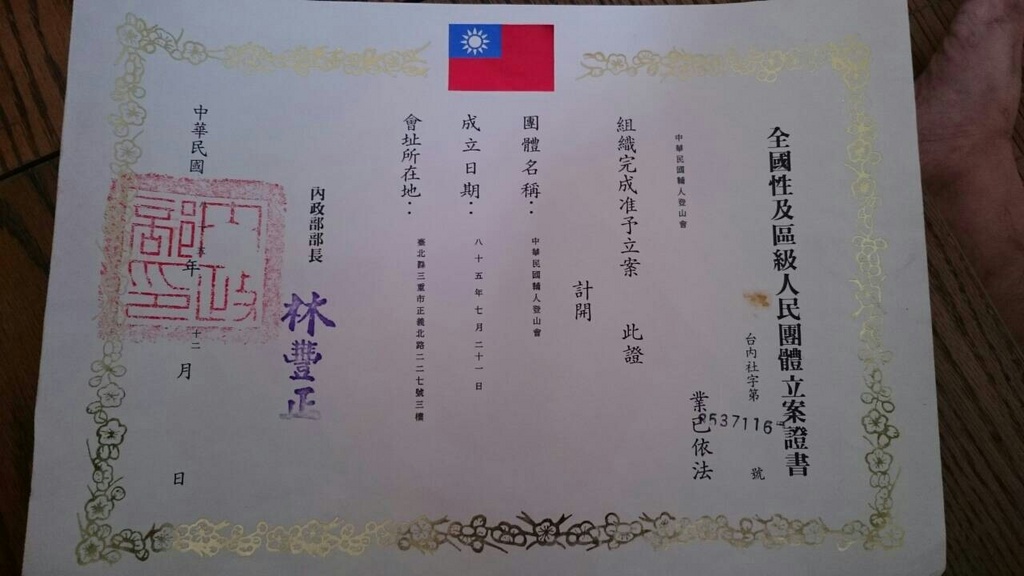 全國性及區級人民團體立案證書
台內社字第 號
中華民國輔人登山會
業已依法
組織完成准予立案 此證
計開
團體名稱：
中華民國輔人登山會
成立日期：
八十五年七月二十一日
會址所在地：
臺北縣三重市正義北路二二七號三樓
內政部部長
林豐正
中華民國 年 十二 月 日
內政部印